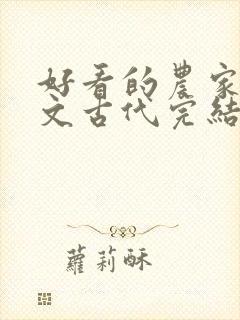 好看的農家
文古代完結
蘿莉酥